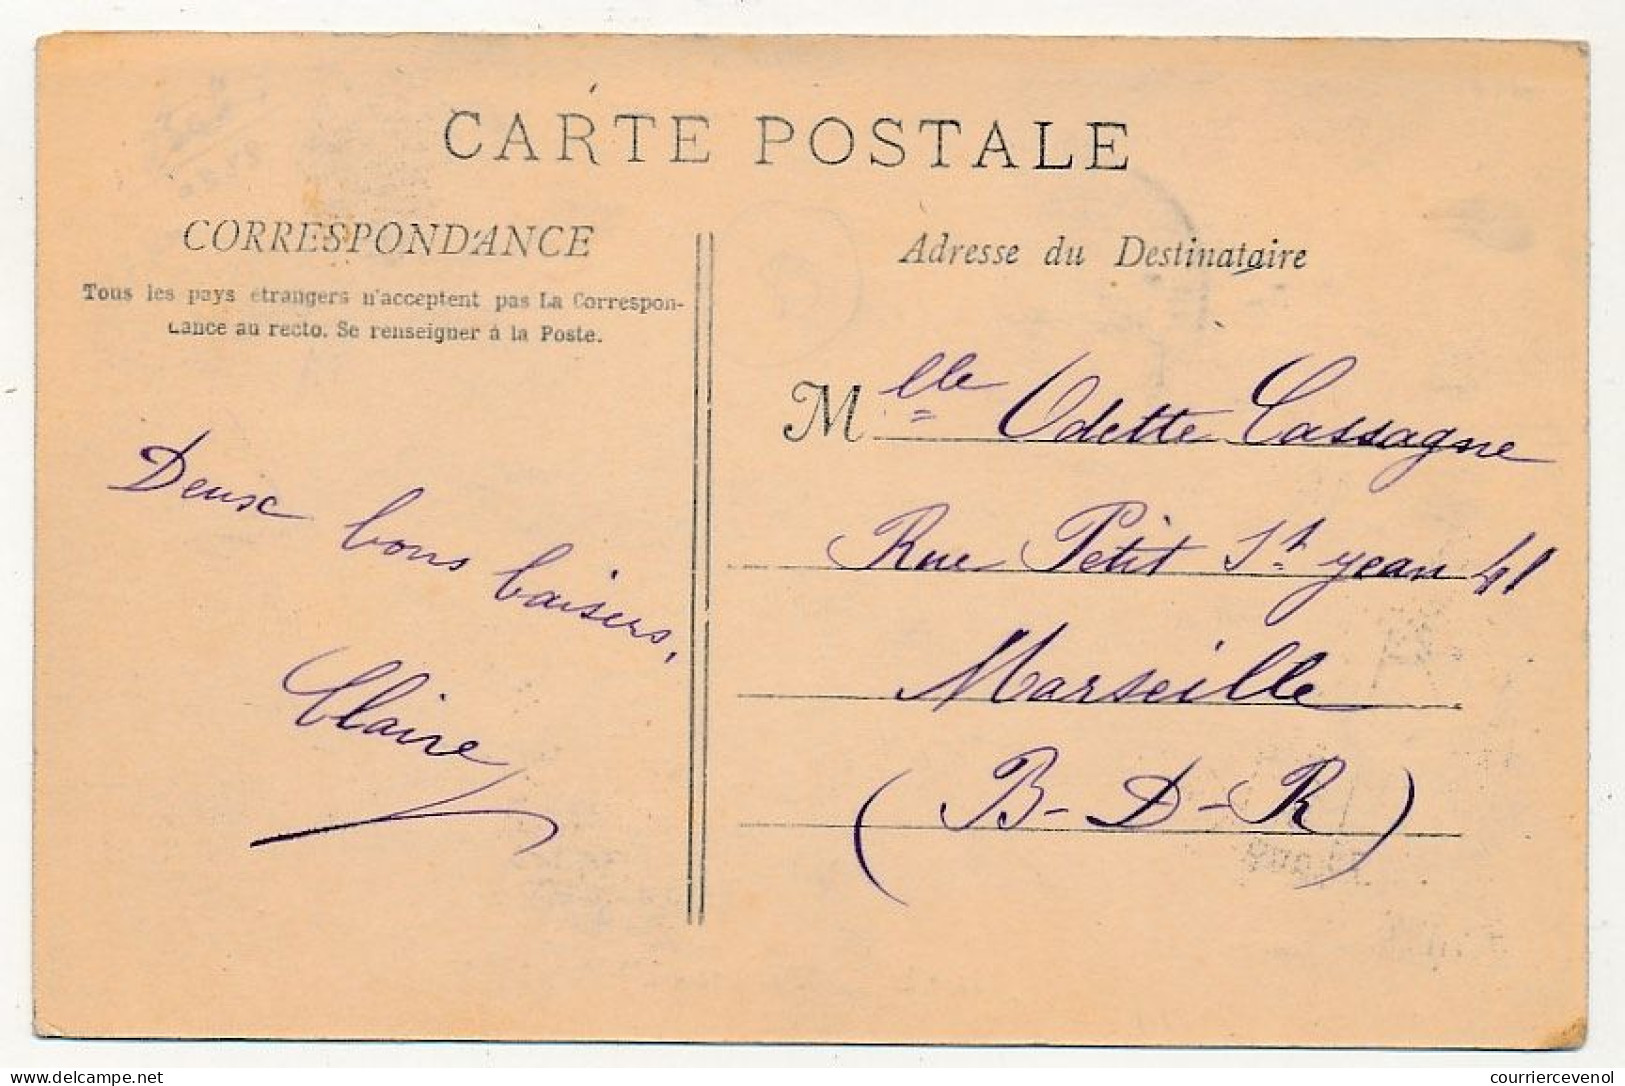 CARTE POSTALE
CORRESPONDANCE
Tous les pays étrangers n'acceptent pas La Correspon-
dance au recto. Se renseigner à la Poste.
Deux bons baisers,
Claire
Adresse du Destinataire
Mlle Odette Cassagne
Rue Petit St Jean 41
Marseille
(B-D-R)
www.delcampe.net
courriercevenol